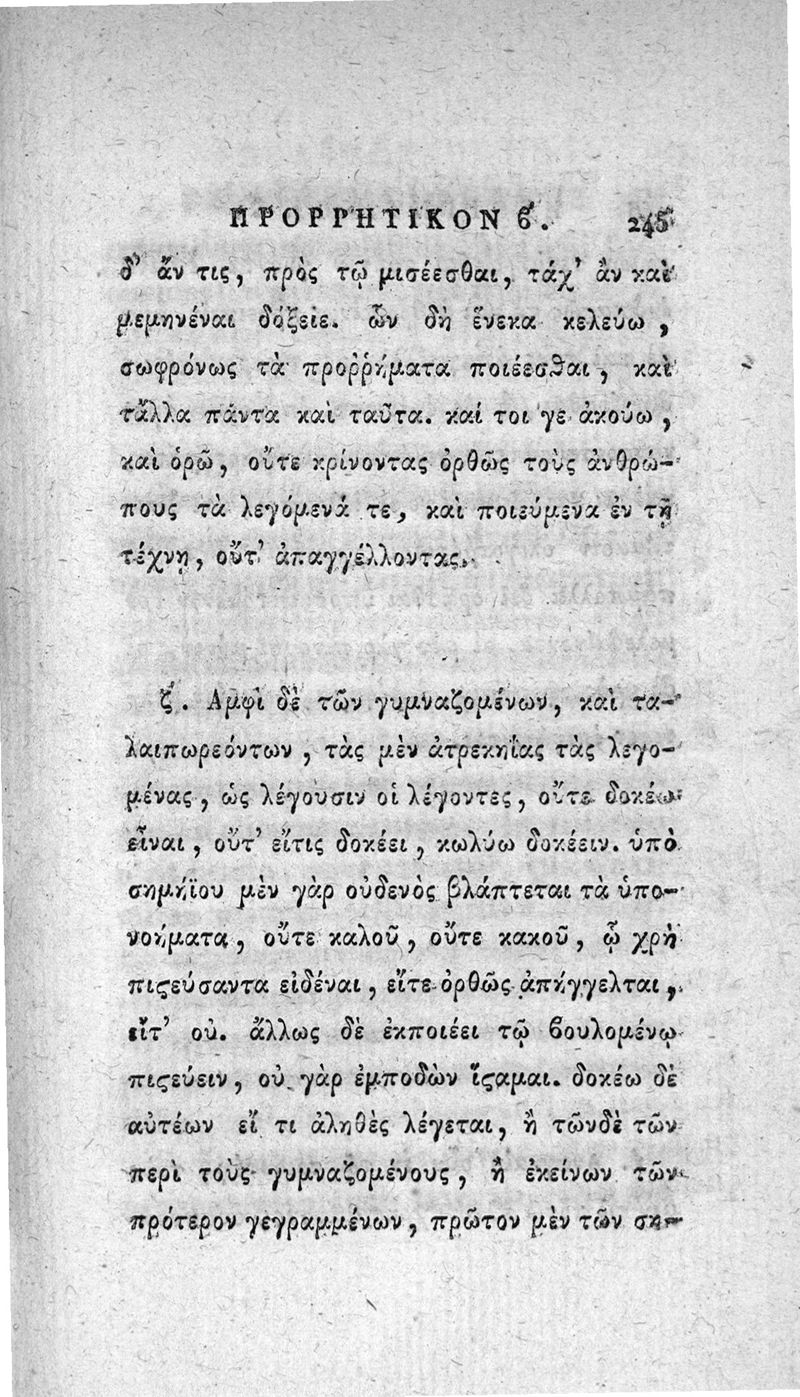 ΠΡΟΡΡΗΤΙΚΟΝ ϐ'. 245
δ' ἄν τις, πρὸς τῷ μισέεσθαι, τάχ' ἂν καὶ
μεμηνέναι δόξειε. ὧν δὴ ἕνεκα κελεύω,
σωφρόνως τὰ προῤῥήματα ποιέεσθαι, καὶ
τἄλλα πάντα καὶ ταῦτα. καί τοι γε ἀκούω,
καὶ ὁρῶ, οὔτε κρίνοντας ὀρθῶς τοὺς ἀνθρώ-
πους τὰ λεγόμενά τε, καὶ ποιεύμενα ἐν τῇ
τέχνῃ, οὔτ' ἀπαγγέλλοντας.
ζ'. Αμφὶ δὲ τῶν γυμναζομένων, καὶ τα-
λαιπωρεόντων, τὰς μὲν ἀτρεκηΐας τὰς λεγο-
μένας, ὡς λέγουσιν οἱ λέγοντες, οὔτε δοκέω
εἶναι, οὔτ' εἴτις δοκέει, κωλύω δοκέειν. ὑπὸ
σημήϊου μὲν γὰρ οὐδενὸς βλάπτεται τὰ ὑπο-
νοήματα, οὔτε καλοῦ, οὔτε κακοῦ, ᾧ χρὴ
πιϛεύσαντα εἰδέναι, εἴτε ὀρθῶς ἀπήγγελται,
εἴτ' οὐ. ἄλλως δὲ ἐκποιέει τῷ ϐουλομένῳ
πιϛεύειν, οὐ γὰρ ἐμποδὼν ἵϛαμαι. δοκέω δὲ
αὐτέων εἴ τι ἀληθὲς λέγεται, ἢ τῶνδε τῶν
περὶ τοὺς γυμναζομένους, ἢ ἐκείνων τῶν
πρότερον γεγραμμένων, πρῶτον μὲν τῶν ση-